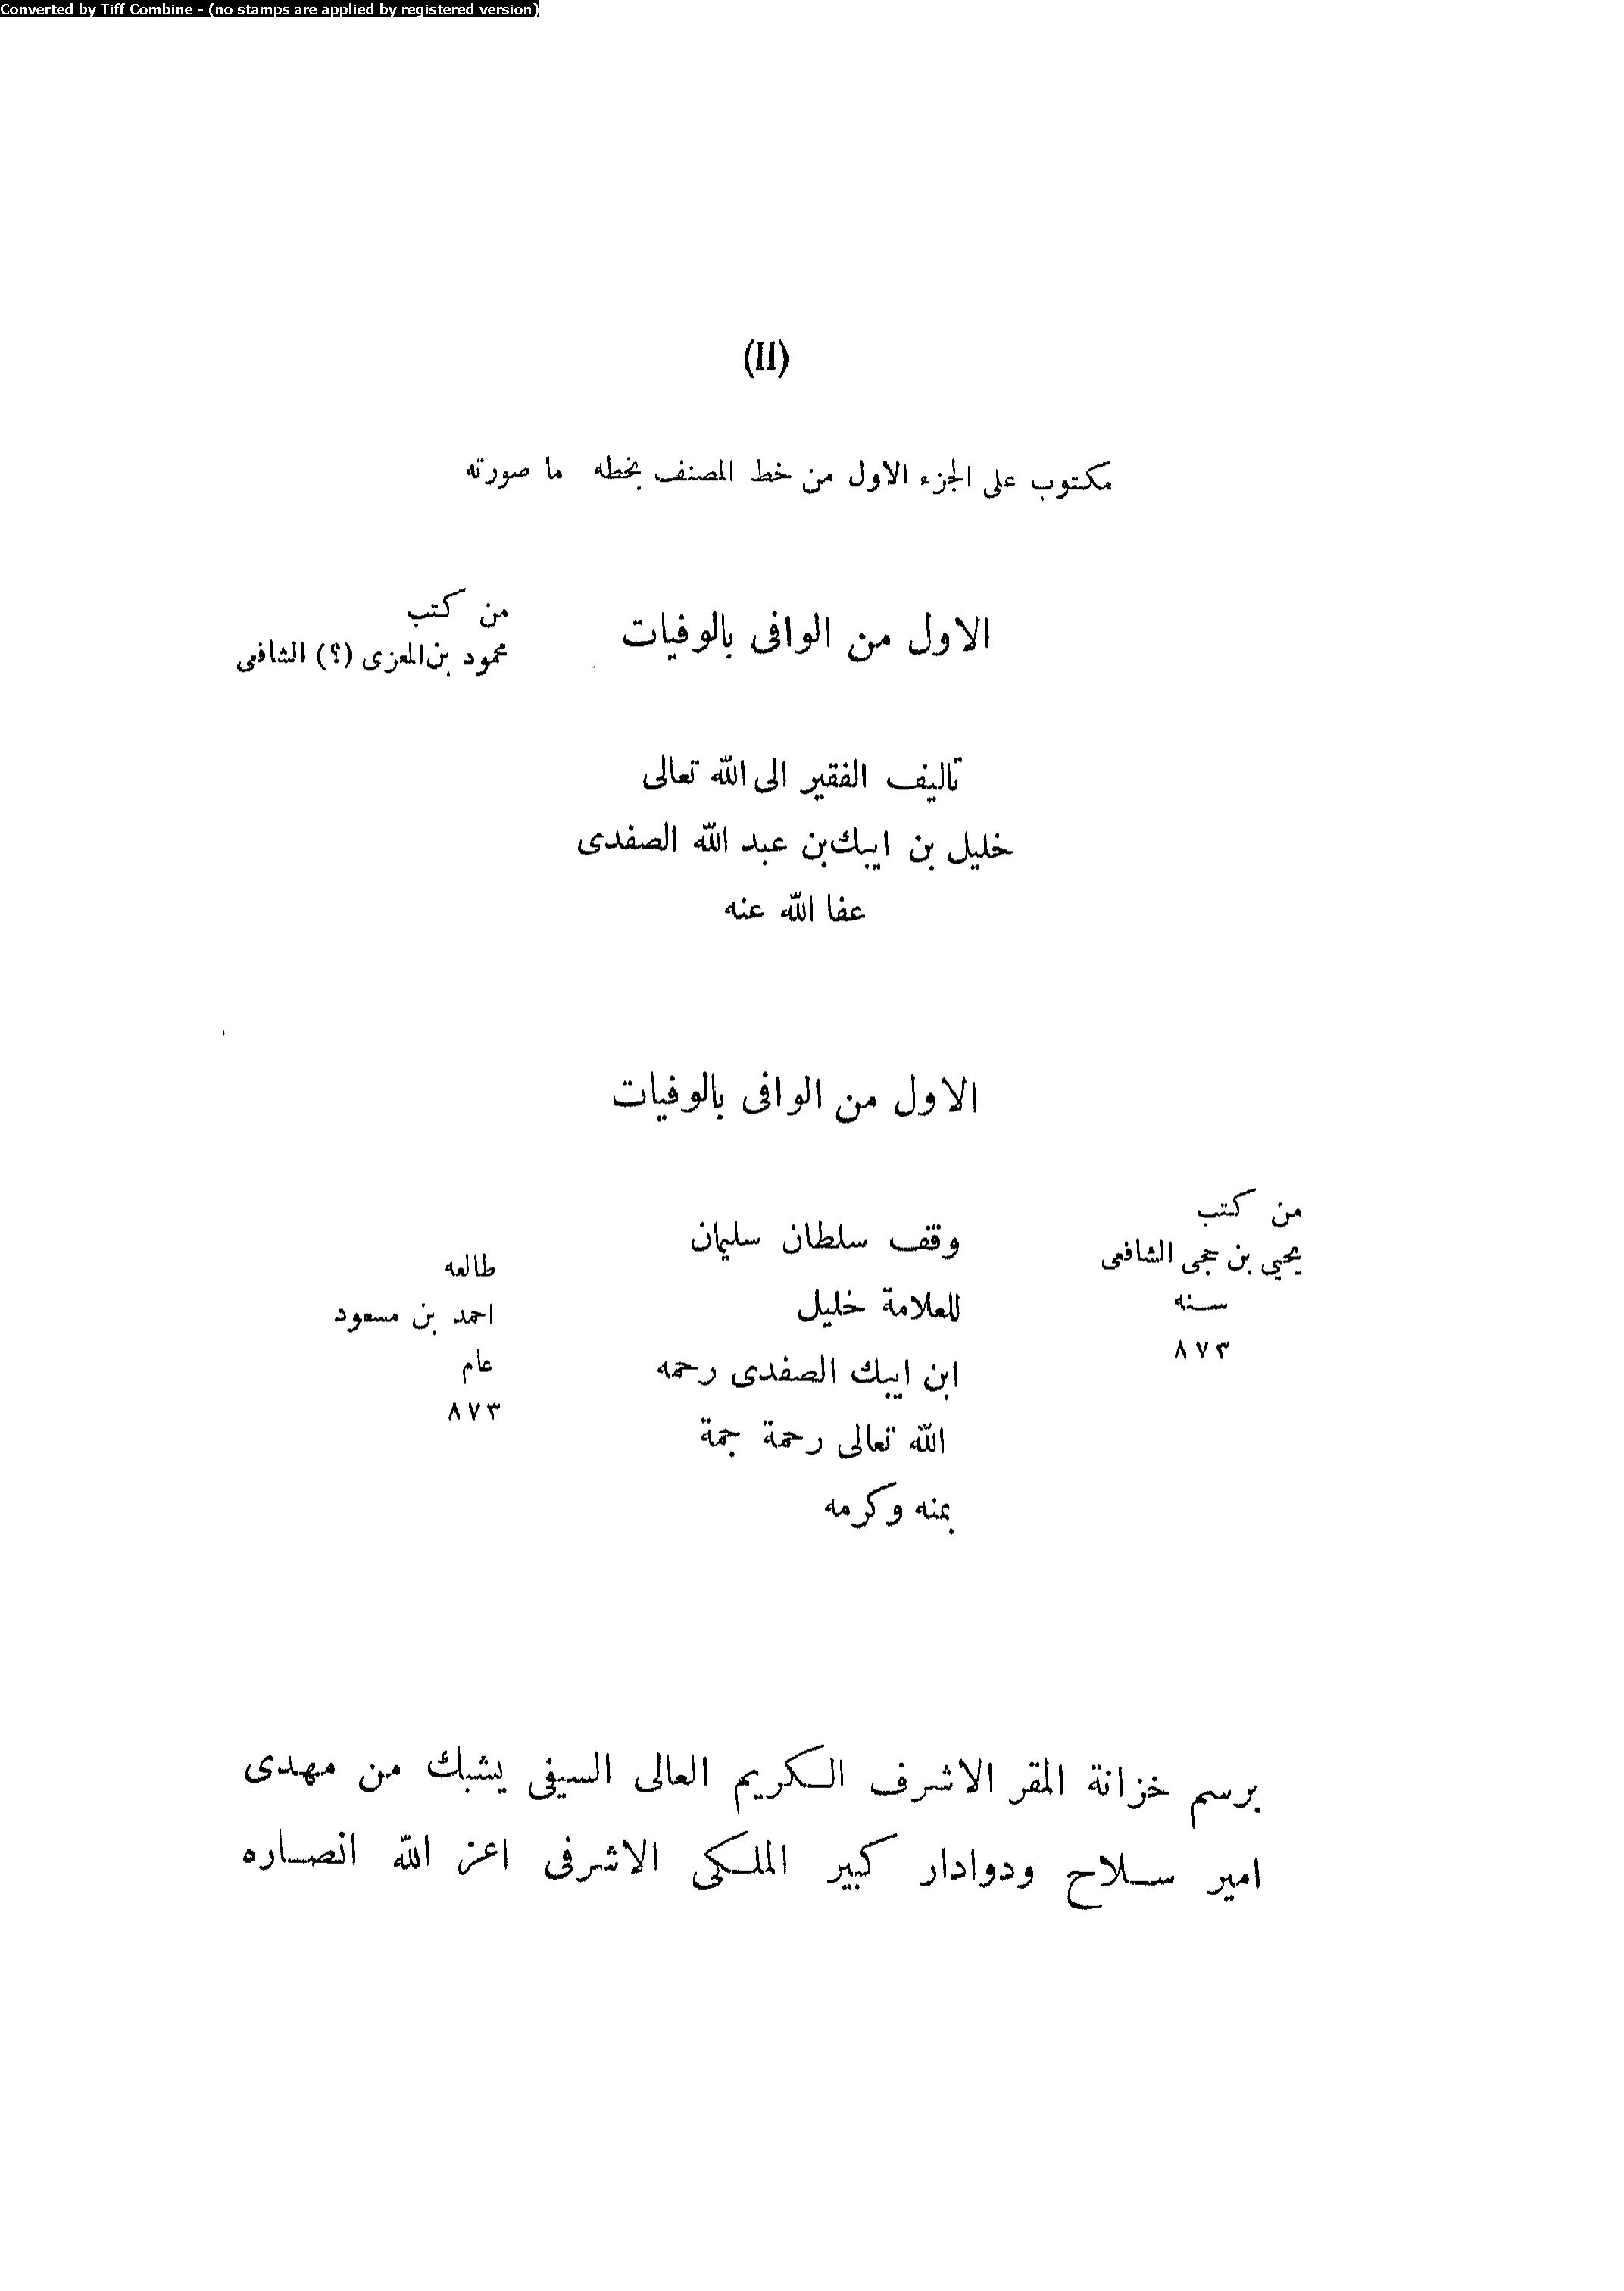 Converted by Tiff Combine - (no stamps are applied by registered version)
(II)
مكتوب على الجزء الاول من خط المصنف بخطه ما صورته
الاول من الوافى بالوفيات
من كتب
محمود بن المعزى (؟) الشافى
تاليف الفقير الى الله تعالى
خليل بن ايبك بن عبد الله الصفدى
عفا الله عنه
الاول من الوافى بالوفيات
من كتب
يحيي بن حجى الشافعى
سنه
٨٧٣
وقف سلطان سليمان
للعلامة خليل
ابن ايبك الصفدى رحمه
الله تعالى رحمة جمة
بمنه وكرمه
طالعه
احمد بن مسعود
عام
٨٧٣
برسم خزانة المقر الاشرف الكريم العالى السيفى يشبك من مهدى
امير سلاح ودوادار كبير الملكى الاشرفى اعز الله انصاره